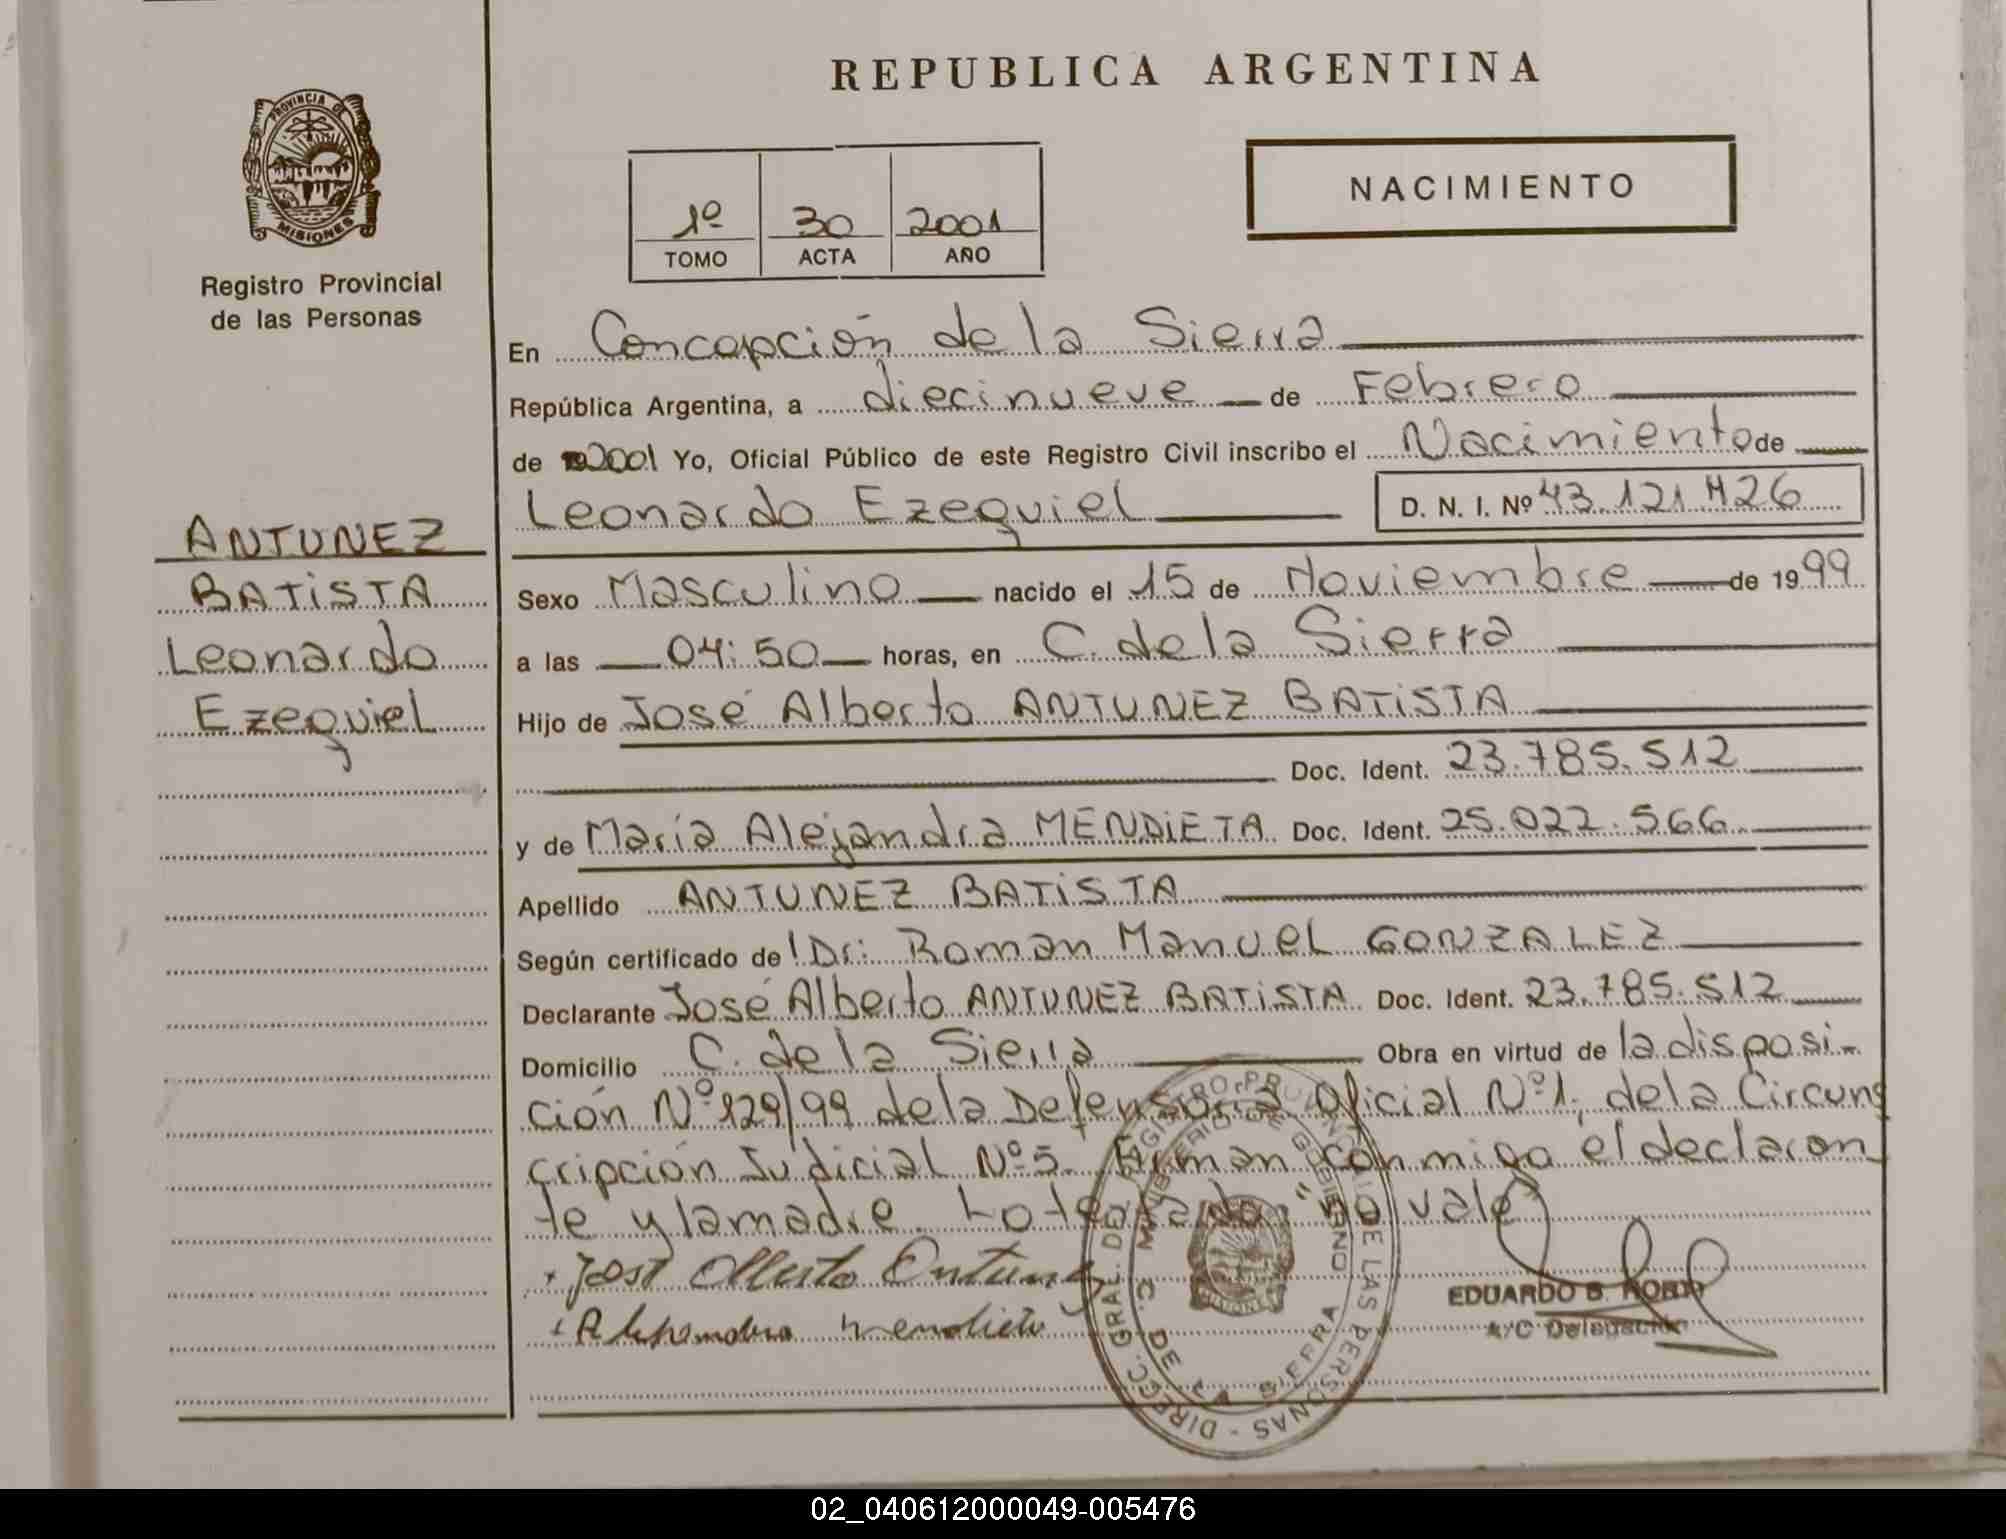 REPUBLICA ARGENTINA
PROVINCIA DE
MISIONES
Registro Provincial
de las Personas
1º 30 2001
TOMO ACTA AÑO
NACIMIENTO
ANTUNEZ
BATiSTA
Leonardo
Ezequiel
En Concepción de la Sierra
República Argentina, a diecinueve de Febrero
de 2001 Yo, Oficial Público de este Registro Civil inscribo el Nacimiento de
Leonardo Ezequiel D. N. I. Nº 43.121.426
Sexo Masculino nacido el 15 de Noviembre de 1999
a las 04:50 horas, en C. de la Sierra
Hijo de José Alberto ANTUNEZ BATiSTA
Doc. Ident. 23.785.512
y de María Alejandra MENDiETA Doc. Ident. 25.022.566
Apellido ANTUNEZ BATiSTA
Según certificado de Dr: Roman Manuel GONZALEZ
Declarante José Alberto ANTUNEZ BATiSTA Doc. Ident. 23.785.512
Domicilio C. de la Sierra Obra en virtud de la disposi-
ción Nº 129/99 de la Defensoría Oficial Nº 1, de la Circuns
cripción Judicial Nº 5. Firman conmigo el declaran
te y la madre. Lo testado "no vale"
José Alberto Antunez
Alejandra Mendieta
EDUARDO B.
A/C Delegación
DIRECC. GRAL. DEL REGISTRO PROVINCIAL DE LAS PERSONAS -
MINISTERIO DE GOBIERNO
C. DE LA SIERRA
02_040612000049-005476